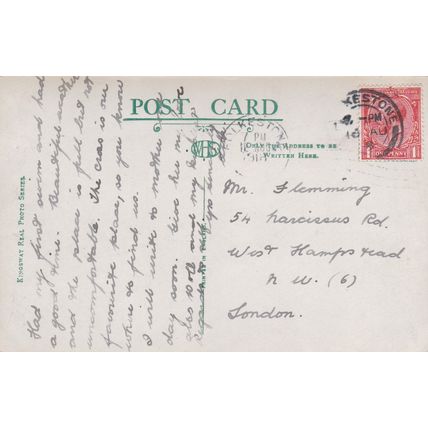 POST CARD
ONLY THE ADDRESS TO BE
WRITTEN HERE.
KINGSWAY REAL PHOTO SERIES.
WHS
FOLKESTONE
PM
KESTONE
PM
AU
ONE PENNY
Had my first swim and had
a good time. Beautiful weather
and the place is full but not
uncomfortable. The
favourite place, so you know
where to find us.
I will write to mother
day soon. Give her my love
also and my
regards to
Mr. Flemming
54 Narcissus Rd.
West Hampstead
N W. (6)
London.